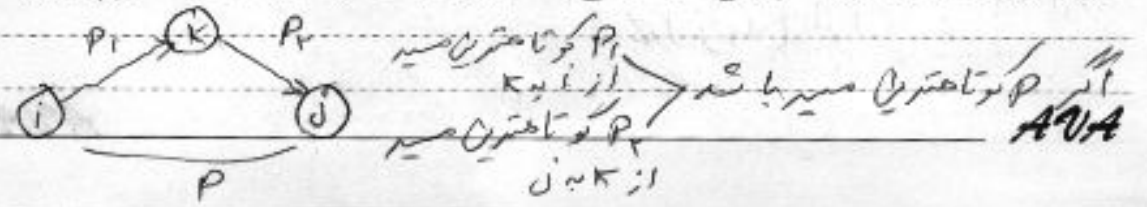 P₁ K P₂
i j
P
اگر P کوتاهترین مسیر باشد
P₁ کوتاهترین مسیر
از i به K
P₂ کوتاهترین مسیر
از K به j
AVA